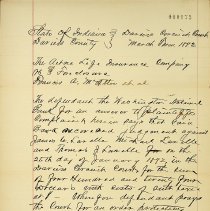 000075
State of Indiana } Daviess Circuit Court
Daviess County } March Term 1892
The Aetna Life Insurance Company
vs } Foreclosure
James A. McAtter et al
The defendant the Washington National
Bank for answer to plaintiffs
Complaint herein says that said
Bank recovered judgment against
James Lavelle Michael Lavelle
and Lavelle Jr on the
25th day of January 1892, in the
Daviess Circuit Court for the sum
of Four Hundred and twenty four
Dollars with costs of suit
Wherefore defendant prays
the Court for an order protecting